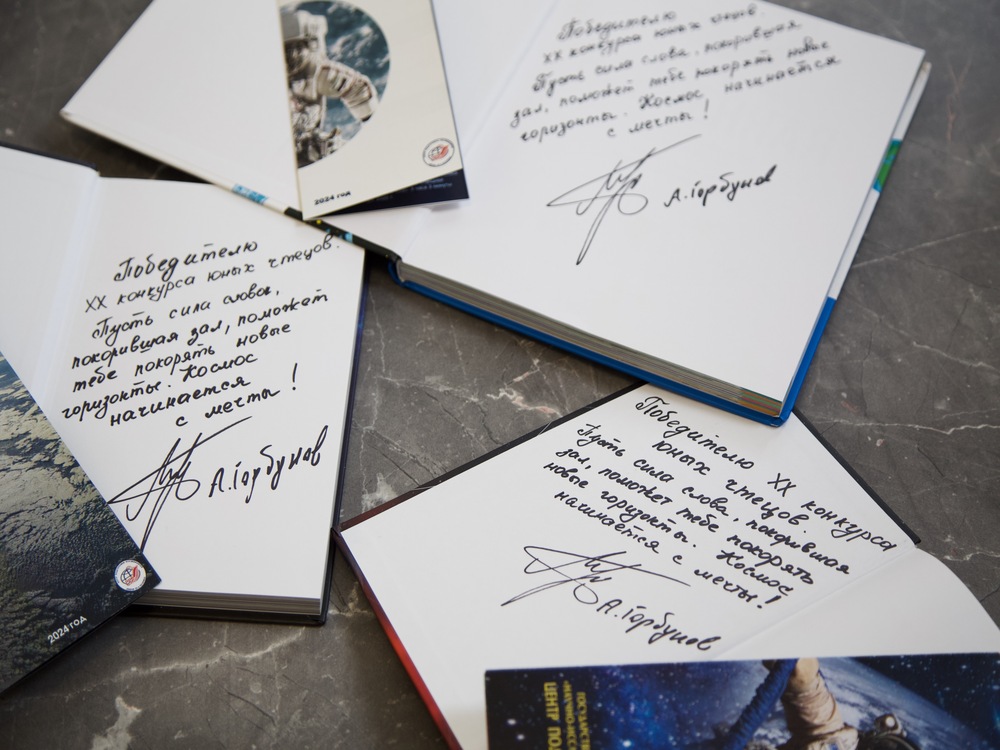 Победителю
XX конкурса юных чтецов.
Пусть сила слова, покорившая
зал, поможет тебе покорять новые
горизонты. Космос начинается
с мечты!
А.Горбунов
2024 год
Победителю
XX конкурса юных чтецов.
Пусть сила слова,
покорившая зал, поможет
тебе покорять новые
горизонты. Космос
начинается
с мечты!
А.Горбунов
2024 год
Победителю XX конкурса
юных чтецов.
Пусть сила слова, покорившая
зал, поможет тебе покорять
новые горизонты. Космос
начинается с мечты!
А.Горбунов
ГОСУДАРСТВ
ЦЕНТР ПО